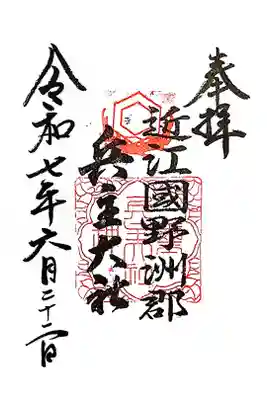 奉拝
近江國野洲郡
兵主大社
令和七年六月二十二日